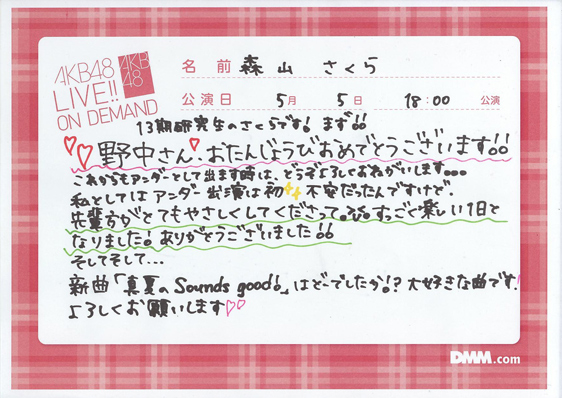 AKB48
LIVE!!
ON DEMAND
AKB
48
名前 森山 さくら
公演日 5月 5日 18:00 公演
13期研究生のさくらです! まず!!
野中さん、おたんじょうびおめでとうございます!!
これからもアンダーとして出ます時は、どうぞよろしくおねがいします…
私としてはアンダー出演は初 不安だったんですけど、
先輩方がとてもやさしくしてくださって。
すっごく楽しい1日と
なりました。ありがとうございました!!
そしてそして…
新曲「真夏のSounds good!」はどーでしたか!? 大好きな曲です!
よろしくお願いします
DMM.com